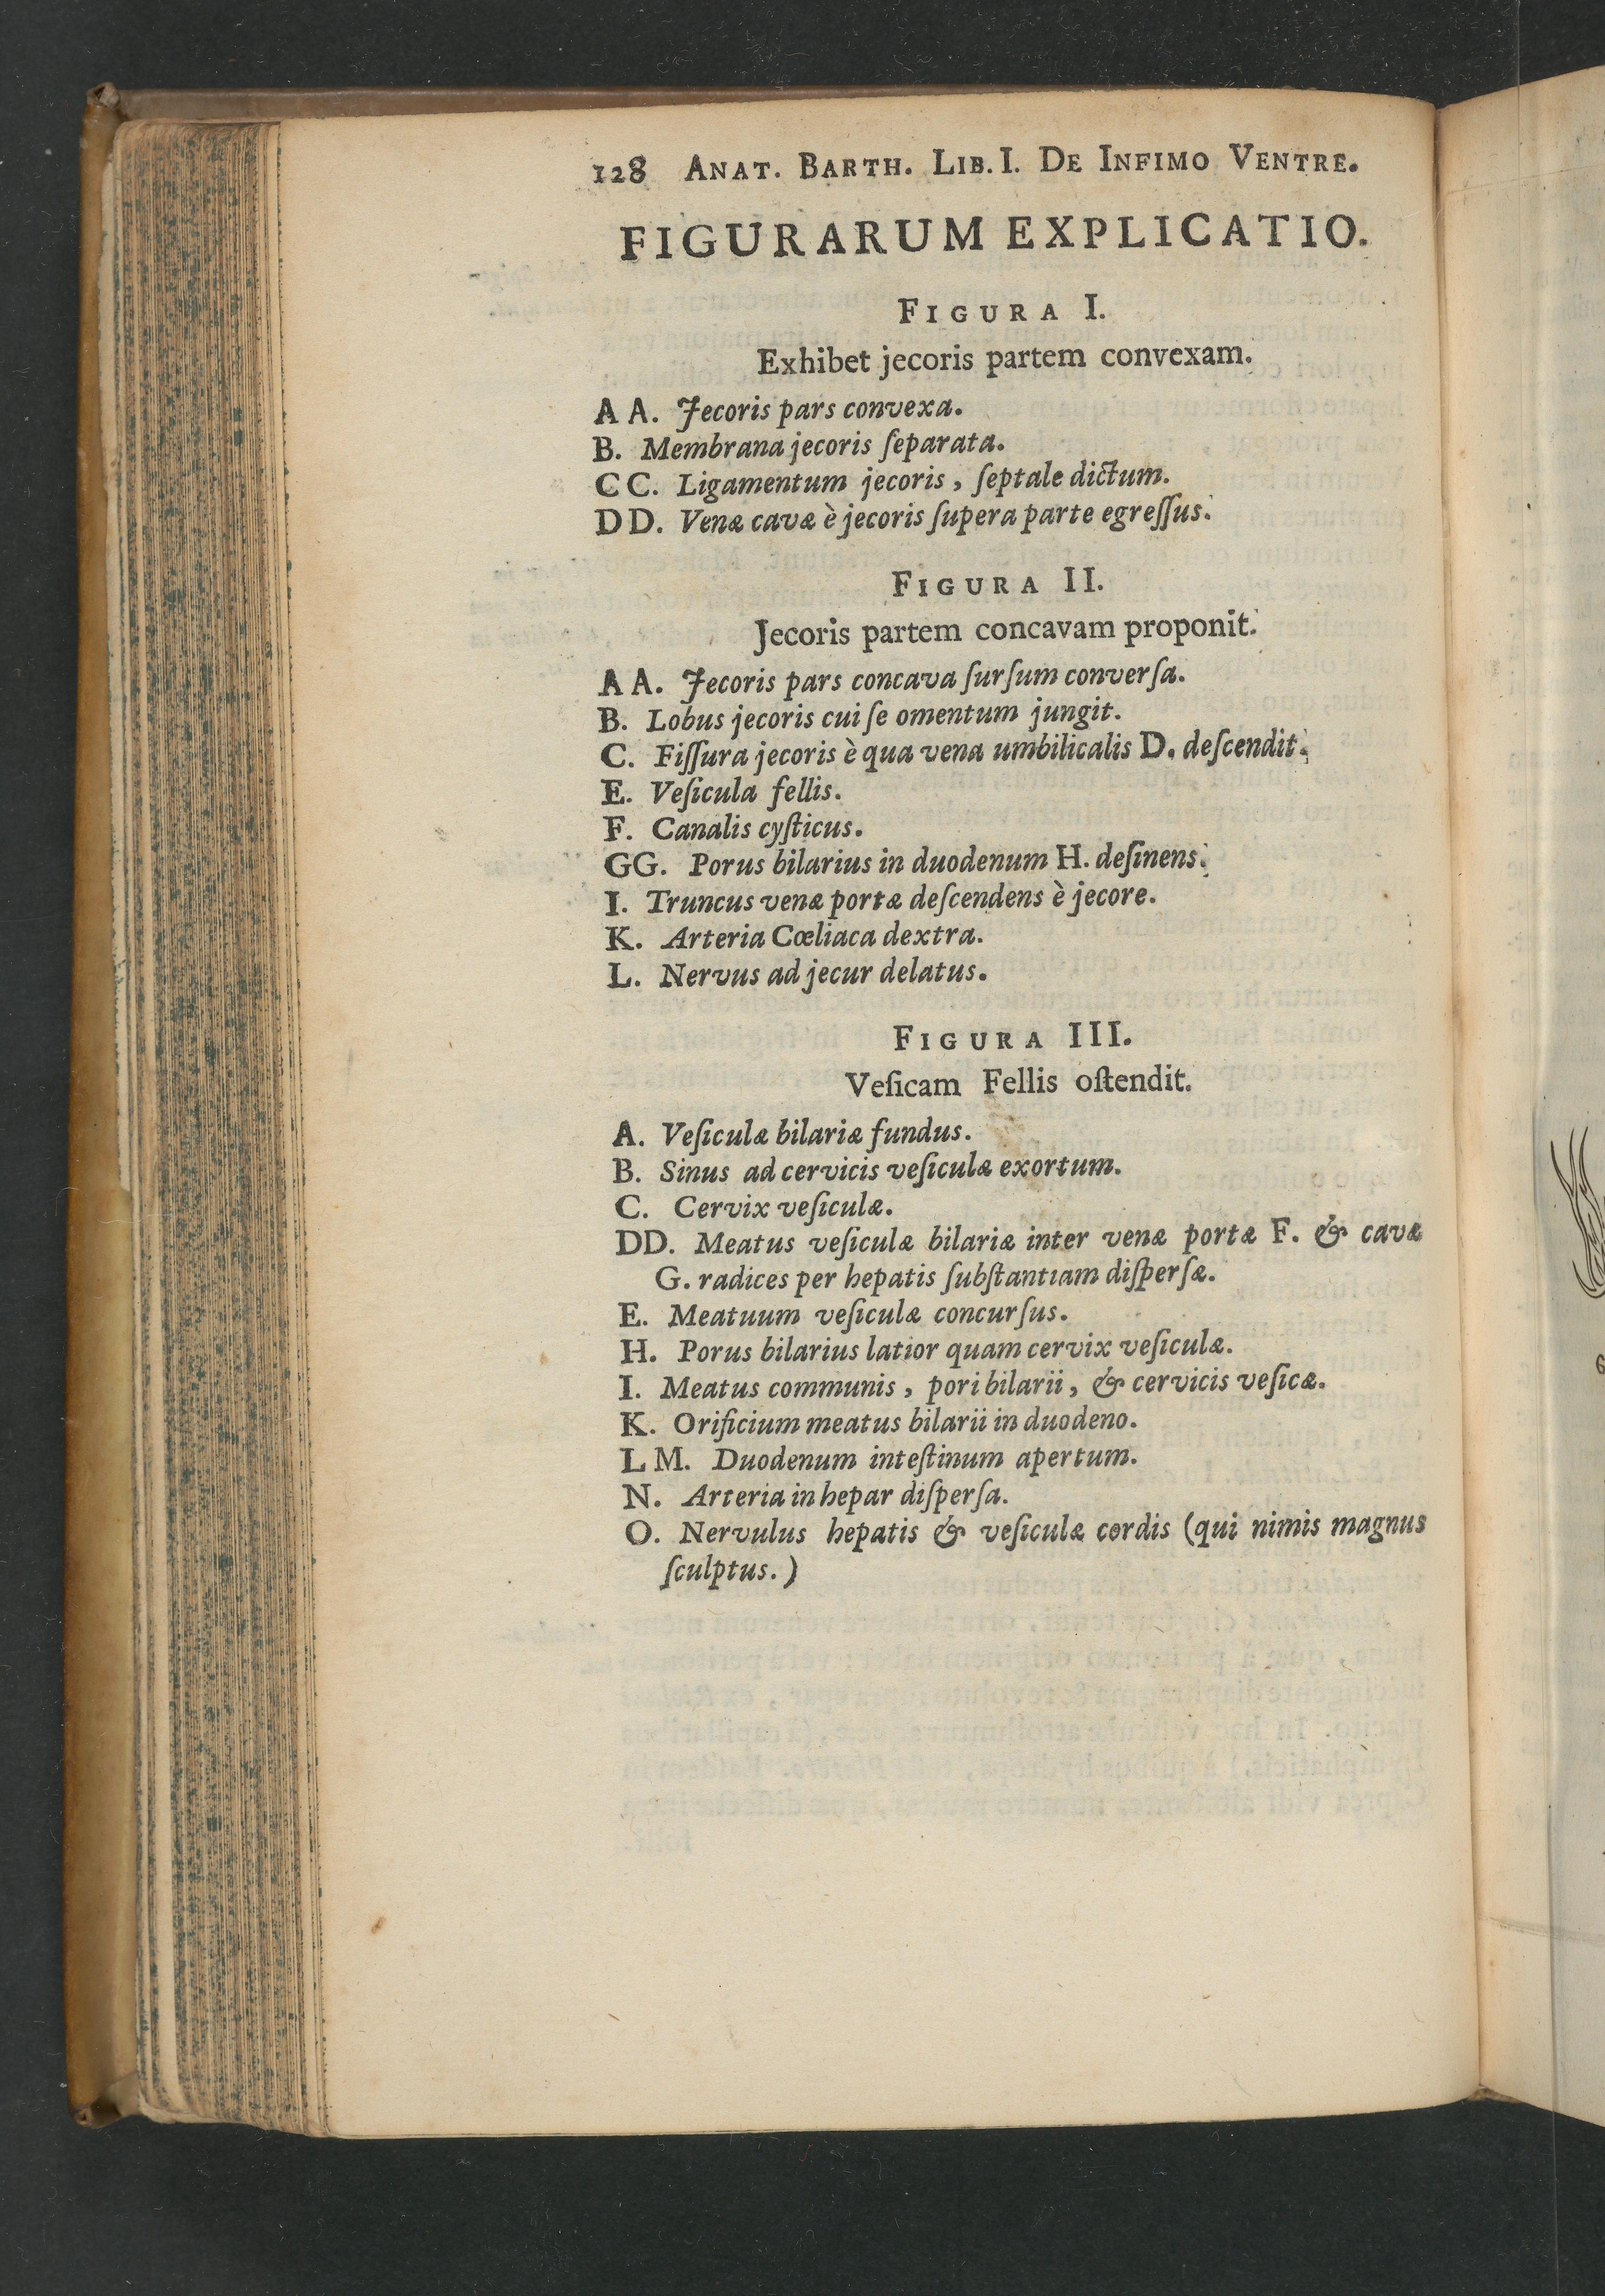 128 ANAT. BARTH. LIB. I. DE INFIMO VENTRE.
FIGURARUM EXPLICATIO.
FIGURA I.
Exhibet jecoris partem convexam.
A A. Jecoris pars convexa.
B. Membrana jecoris ſeparata.
C C. Ligamentum jecoris, ſeptale dictum.
D D. Venæ cavæ è jecoris ſupera parte egreſſus.
FIGURA II.
Jecoris partem concavam proponit.
A A. Jecoris pars concava ſurſum converſa.
B. Lobus jecoris cui ſe omentum jungit.
C. Fiſſura jecoris è qua vena umbilicalis D. deſcendit.
E. Veſicula fellis.
F. Canalis cyſticus.
GG. Porus bilarius in duodenum H. deſinens.
I. Truncus venæ portæ deſcendens è jecore.
K. Arteria Cœliaca dextra.
L. Nervus ad jecur delatus.
FIGURA III.
Veſicam Fellis oſtendit.
A. Veſiculæ bilariæ fundus.
B. Sinus ad cervicis veſiculæ exortum.
C. Cervix veſiculæ.
DD. Meatus veſiculæ bilariæ inter venæ portæ F. & cavæ
G. radices per hepatis ſubſtantiam diſperſæ.
E. Meatuum veſiculæ concurſus.
H. Porus bilarius latior quam cervix veſiculæ.
I. Meatus communis, pori bilarii, & cervicis veſicæ.
K. Orificium meatus bilarii in duodeno.
L M. Duodenum inteſtinum apertum.
N. Arteria in hepar diſperſa.
O. Nervulus hepatis & veſiculæ cordis (qui nimis magnus
ſculptus.)